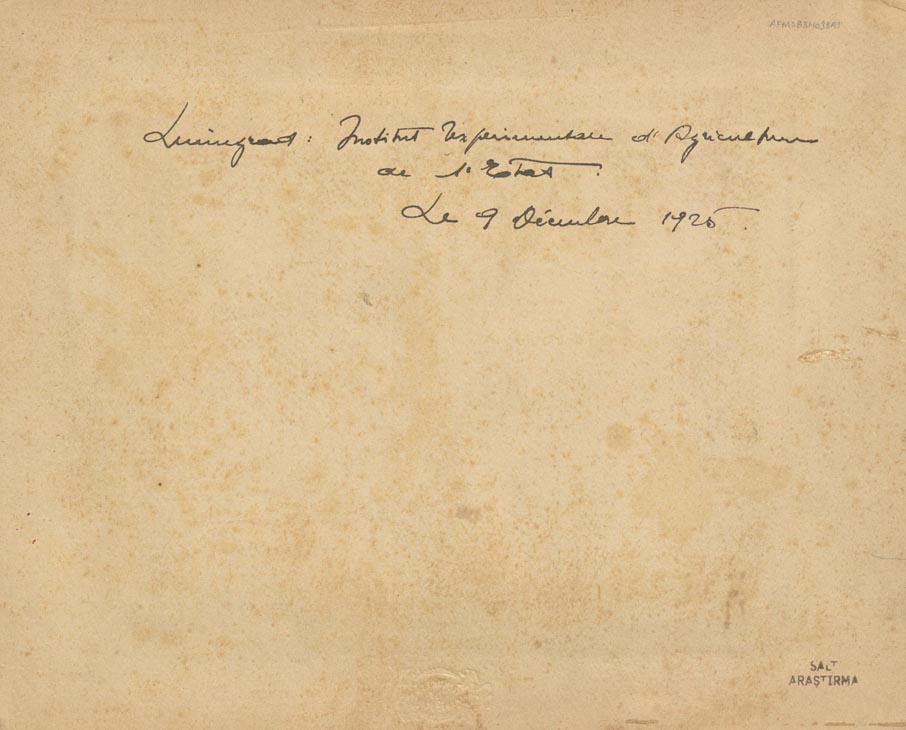 Leningrad : Institut Expérimentale d'Agriculture
de l'Etat .
Le 9 Décembre 1925 .
SALT
ARAŞTIRMA